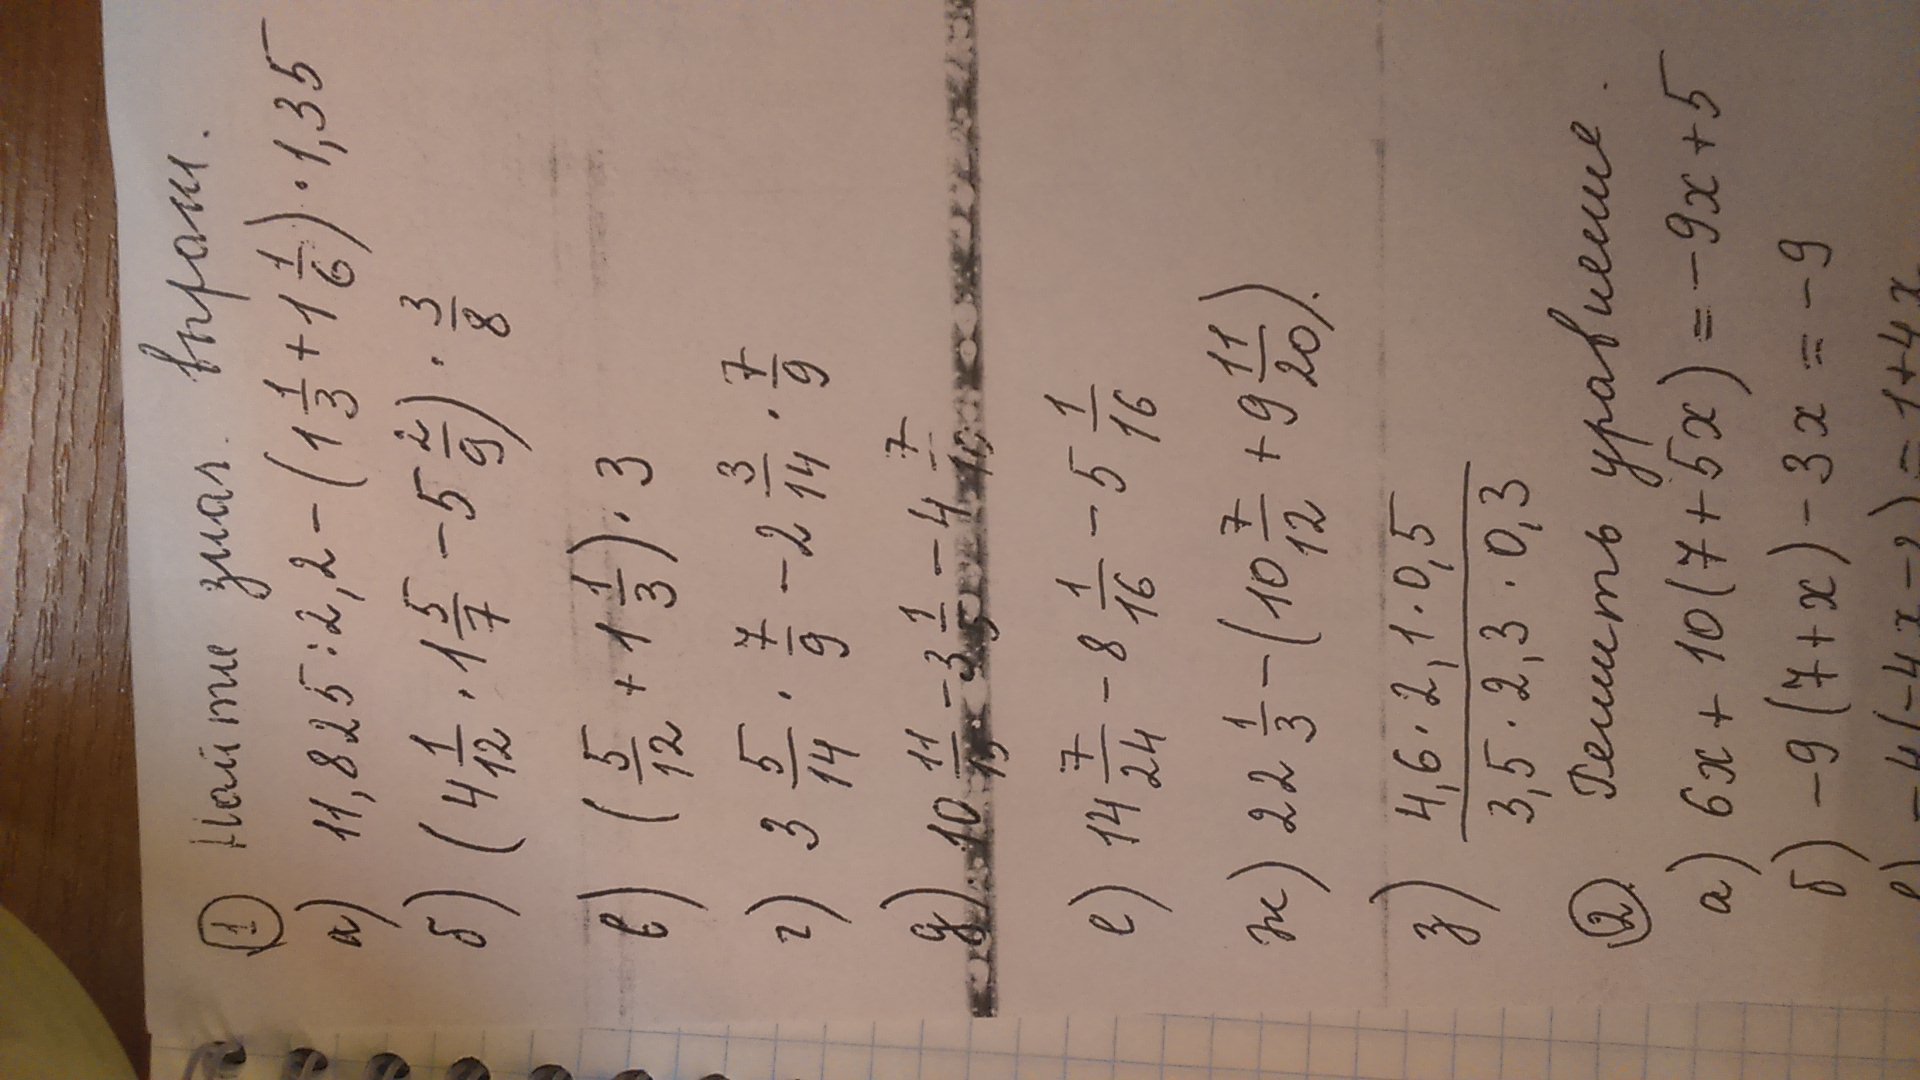 ① Найти знач. выраж.
а) 11,825 : 2,2 - (1 1/3 + 1 1/6) · 1,35
б) (4 1/12 · 1 5/7 - 5 2/9) · 3/8
в) (5/12 + 1 1/3) · 3
г) 3 5/14 · 7/9 - 2 3/14 · 7/9
д) 10 11/15 - 3 1/15 - 4 7/15
е) 14 7/24 - 8 1/16 - 5 1/16
ж) 22 1/3 - (10 7/12 + 9 11/20).
з) 4,6 · 2,1 · 0,5 / 3,5 · 2,3 · 0,3
② Решить уравнение.
а) 6x + 10(7+5x) = -9x+5
б) -9(7+x) - 3x = -9
в) -4(-4x-2) = 1+4x